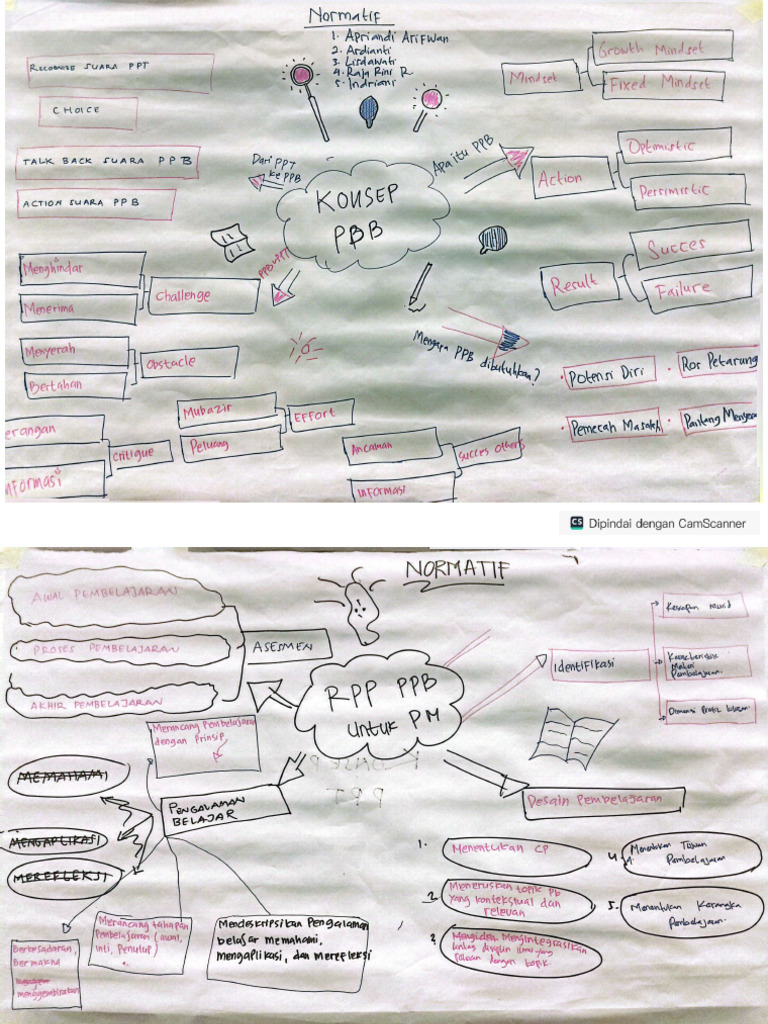 Normatif
1. Apriandi Arifwan
2. Ardianti
3. Lisdawati
4. Raja Rini R
5. Indriani
RECOGNIZE SUARA PPT
CHOICE
TALK BACK SUARA PPB
ACTION SUARA PPB
Dari PPT
ke PPB
KONSEP
PBB
Apa itu PPB
Mindset
Growth Mindset
Fixed Mindset
Action
Optimistic
Persimistic
Result
Succes
Failure
PPB v PPT
Menghindar
Menerima
Challenge
Menyerah
Bertahan
Obstacle
erangan
informasi
critigue
Mubazir
Peluang
EFFort
Ancaman
Informasi
succes others
Mengapa PPB dibutuhkan?
• Potensi Diri
• Ros Petarung
• Pemecah Masalah
• Pantang
Dipindai dengan CamScanner
NORMATIF
AWAL PEMBELAJARAN
PROSES PEMBELAJARAN
AKHIR PEMBELAJARAN
ASESMEN
RPP PPB
untuk PM
Identifikasi
Kesiapan Murid
Karakteristik
Materi
Pembelajaran
Dimensi Profil lulusan
Desain Pembelajaran
1. Menentukan CP
2. Meneruskan topik Pb
yang kontekstual dan
relevan
3. Mengintegrasikan
lintas disiplin ilmu yang
relevan dengan topik.
4. Menentukan Tujuan
Pembelajaran
5. Menentukan Kerangka
Pembelajaran
PENGALAMAN
BELAJAR
Merancang Pembelajaran
dengan prinsip
MEMAHAMI
MENGAPLIKASI
MEREFLEKSI
Berkesadaran,
Bermakna
menggembirakan
Merancang tahapan
Pembelajaran (awal,
inti, Penutup)
Mendeskripsikan Pengalaman
belajar memahami,
mengaplikasi, dan merefleksi